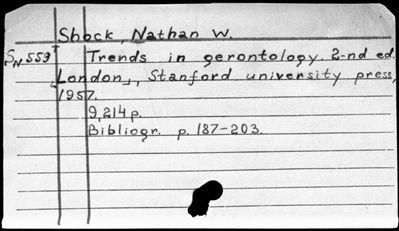 Shock, Nathan W.
SN 559 Trends in gerontology. 2-nd ed.
London, Stanford university press,
1957.
9,214 p.
Bibliogr. p. 187-203.